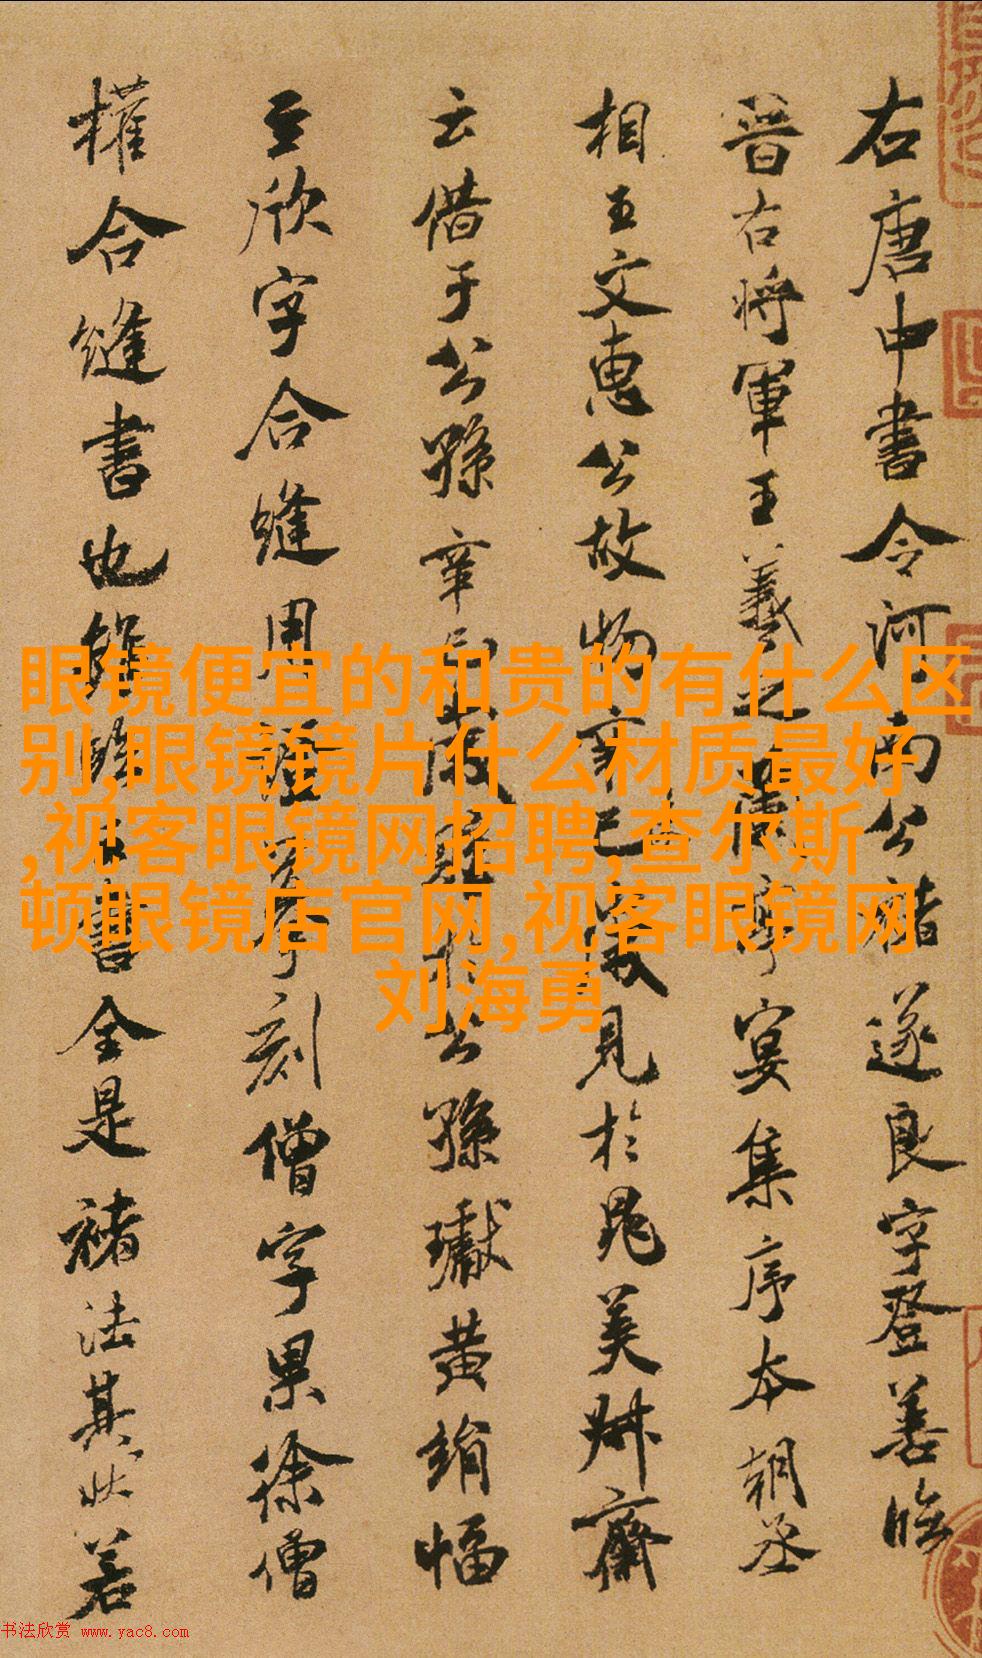 右唐中書令河南公褚遂良字登善臨
晉右將軍王羲之蘭亭宴集序本朝丞
相王文惠公故物辛巳歲見於晁美叔齋
云借于公孫辛卯歲購於公孫瓛黃絹幅
至欣字合縫用證摹刻僧字果徐僧
權合縫書也雖臨王書全是褚法其狀若
眼镜便宜的和贵的有什么区
别,眼镜镜片什么材质最好
,视客眼镜网招聘,查尔斯
顿眼镜店官网,视客眼镜网
刘海勇
书法欣赏 www.yac8.com